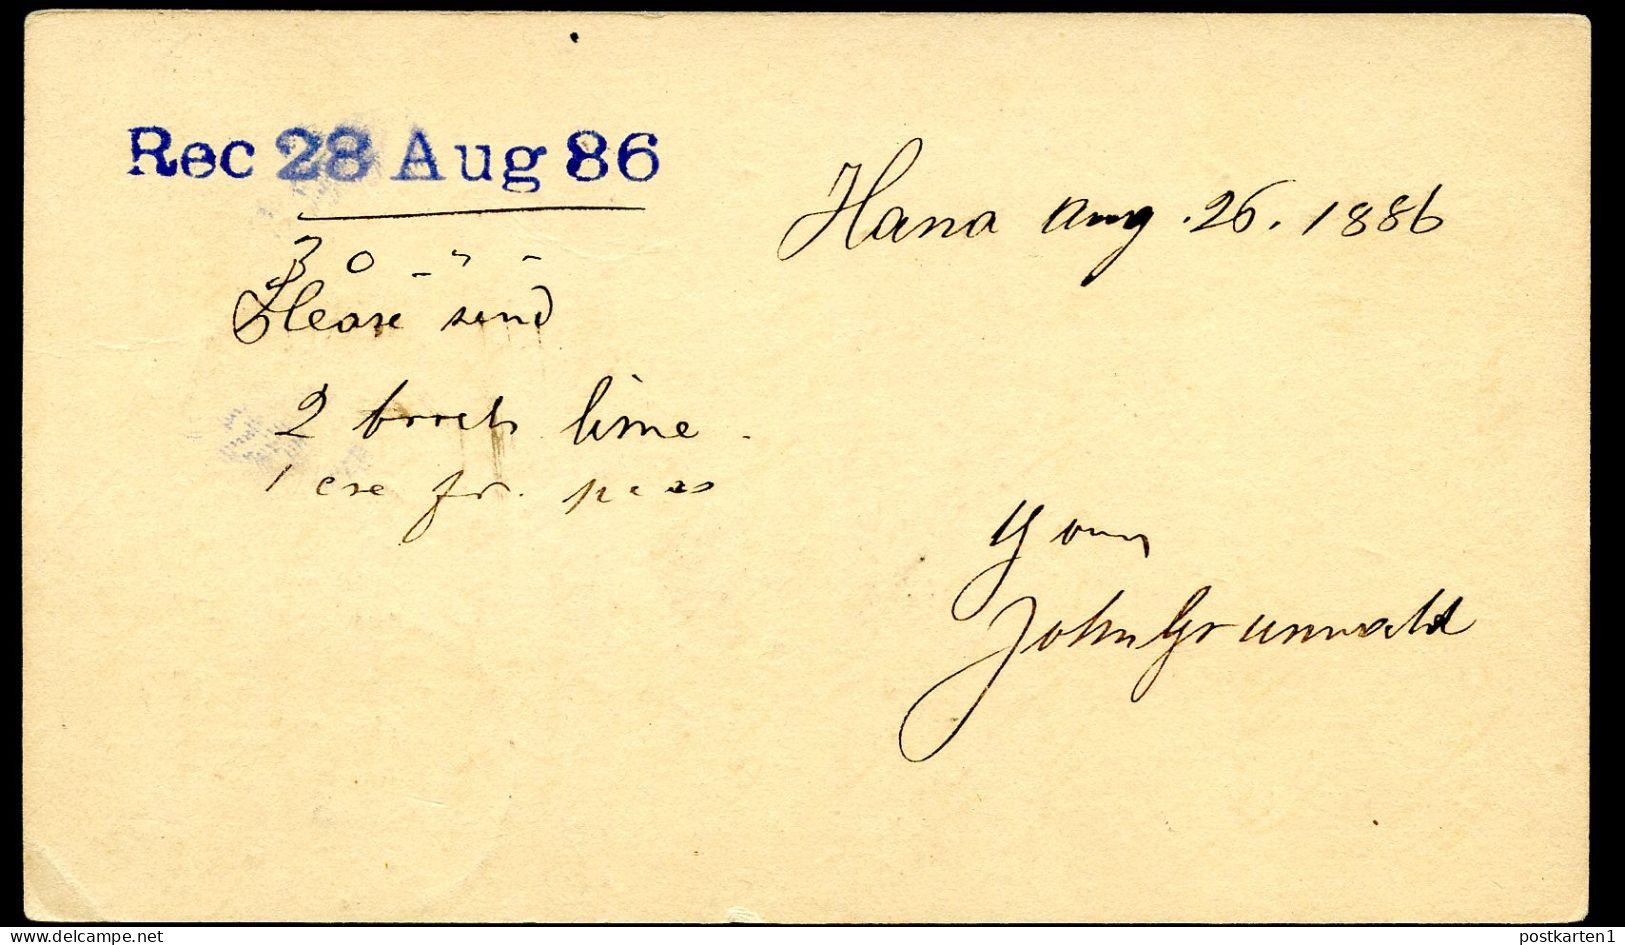 Rec 28 Aug 86
Hana Aug. 26. 1886
Please send
2 lime.
1 cse fr. peas
Yours
John Grunwald
www.delcampe.net
postkarten1